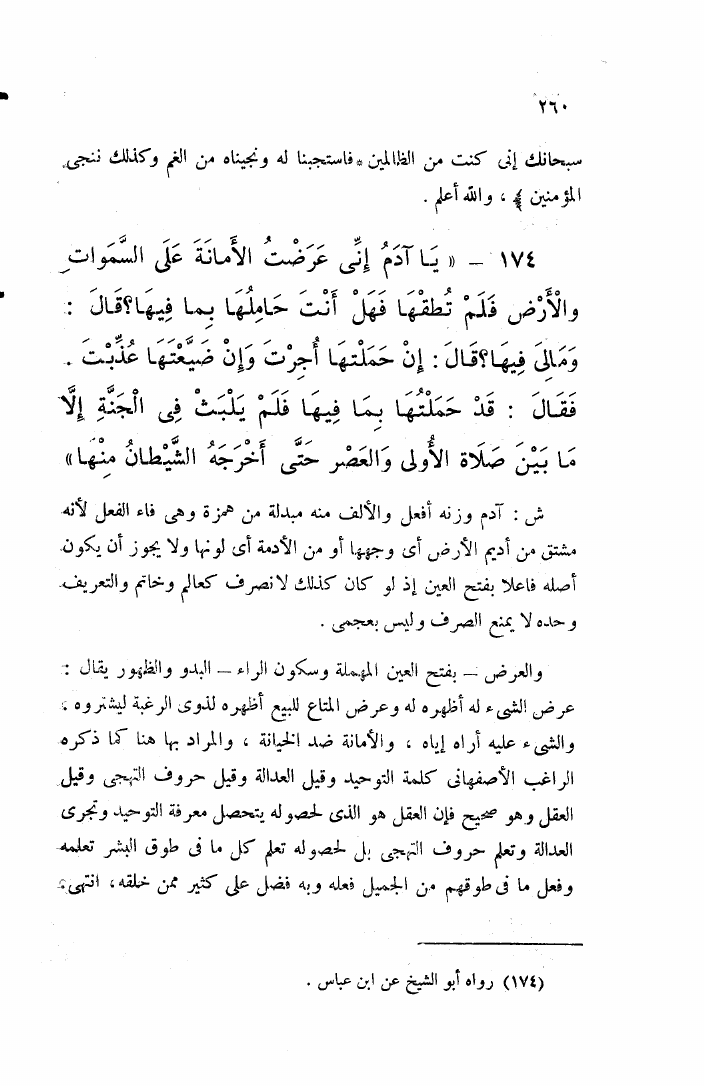 ٢٦٠
سبحانك إنى كنت من الظالمين * فاستجبنا له ونجيناه من الغم وكذلك ننجى
المؤمنين ﴾ ، والله أعلم .
١٧٤ – « يَا آدَمُ إِنِّى عَرَضْتُ الأَمانَةَ عَلَى السَّمَوات
والأَرْضِ فَلَمْ تُطقْهَا فَهَلْ أَنْتَ حَامِلُهَا بِما فِيهَا؟قَالَ :
وَمَالِىَ فِيهَا؟قَالَ : إِنْ حَمَلْتهَا أُجِرْتَ وَإِنْ ضَيَّعْتَهَا عُذِّبْتَ .
فَقَالَ : قَدْ حَمَلْتُهَا بِمَا فِيهَا فَلَمْ يَلْبَثْ فِى الْجَنَّةِ إِلَّا
مَا بَيْنَ صَلَاة الأُولى وَالعَصْرِ حَتَّى أَخْرَجَهُ الشَّيْطانُ مِنْهَا»
ش : آدم وزنه أفعل والألف منه مبدلة من همزة وهى فاء الفعل لأنه
مشتق من أديم الأرض أى وجهها أو من الأدمة أى لونها ولا يجوز أن يكون
أصله فاعلا بفتح العين إذ لو كان كذلك لانصرف كعالم وخاتم والتعريف
وحده لا يمنع الصرف وليس بعجمى .
والعرض – بفتح العين المهملة وسكون الراء – البدو والظهور يقال :
عرض الشىء له أظهره له وعرض المتاع للبيع أظهره لذوى الرغبة ليشتروه ،
والشىء عليه أراه إياه ، والأمانة ضد الخيانة ، والمراد بها هنا كما ذكره
الراغب الأصفهانى كلمة التوحيد وقيل العدالة وقيل حروف التهجى وقيل
العقل وهو صحيح فإن العقل هو الذى لحصوله يتحصل معرفة التوحيد وتجرى
العدالة وتعلم حروف التهجى بل لحصوله تعلم كل ما فى طوق البشر تعلمه
وفعل ما فى طوقهم من الجميل فعله وبه فضل على كثير ممن خلقه ، انتهى
(١٧٤) رواه أبو الشيخ عن ابن عباس .